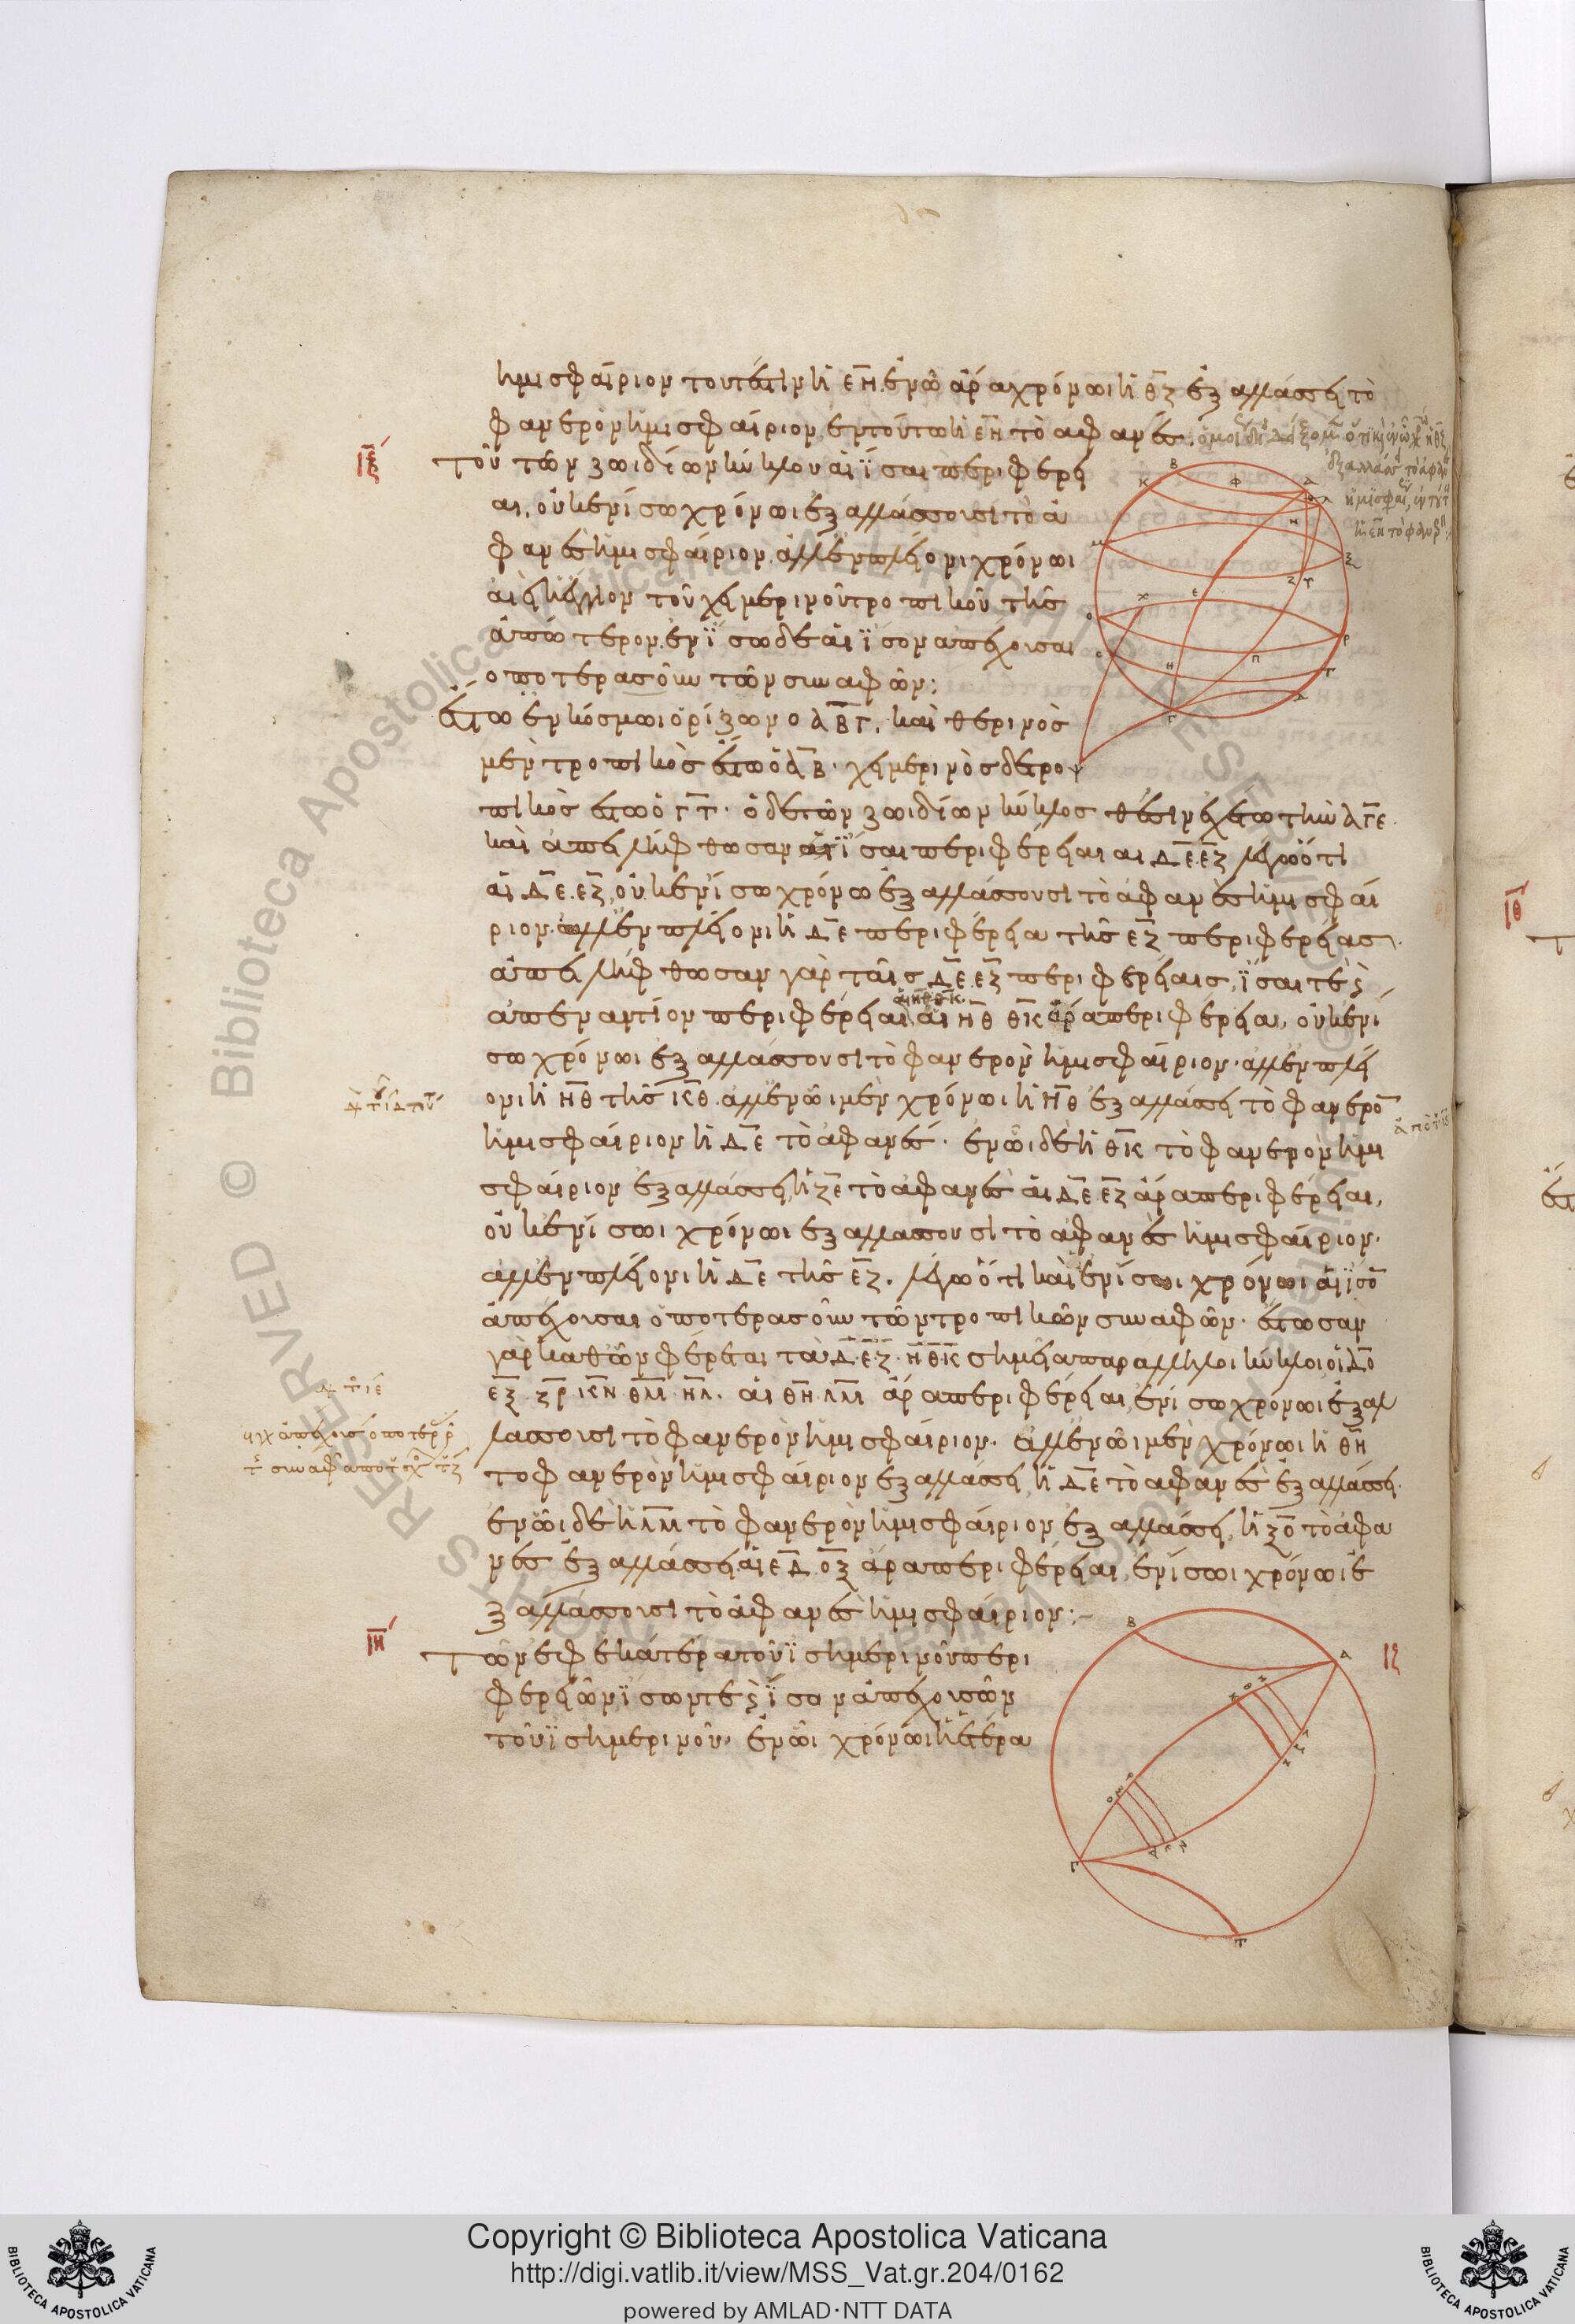 ἡμισφαίριον τουτέστιν ἡ ΕΗ. ἐν ὧ ἄρα χρόνωι ἡ ΘΖ ἐξαλλάσσει τὸ
φανερὸν ἡμισφαίριον, ἐν τούτω ἡ ΕΗ τὸ ἀφανές.
ΙΖ
Τοῦ τῶν ζωιδίων κύκλου αἱ ἴσαι περιφέρει
αι, οὐκ ἐν ἴσω χρόνωι ἐξαλλάσσουσι τὸ ἀ
φανὲς ἡμισφαίριον. ἀλλ' ἐν πλείονι χρόνωι
ἀεὶ ἡ ἔγγιον τοῦ χειμερινοῦ τροπικοῦ τῆς
ἀπώτερον. ἐν ἴσω δὲ αἱ ἴσον ἀπέχουσαι
ὁποτερασοῦν τῶν συναφῶν:
Ἔστω ἐν κόσμωι ὁρίζων ὁ ΑΒΓ, καὶ θερινὸς
μὲν τροπικὸς ἔστω ὁ ΑΒ. χειμερινὸς δὲ τρο
πικὸς ἔστω ὁ ΓΤ. ὁ δὲ τῶν ζωιδίων κύκλος θέσιν ἐχέτω τὴν ΑΓΕ.
καὶ ἀπειλήφθωσαν ἴσαι περιφέρειαι αι ΔΕ ΕΖ λέγω ὅτι
αἱ ΔΕ. ΕΖ, οὐκ ἐν ἴσω χρόνω ἐξαλλάσσουσι τὸ ἀφανὲς ἡμισφαί
ριον. ἀλλ' ἐν πλείονι ἡ ΔΕ περιφέρεια τῆς ΕΖ περιφερείας.
ἀπειλήφθωσαν γὰρ ταῖς ΔΕ ΕΖ περιφερείαις, ἴσαι τε καὶ
ἀπεναντίον περιφέρειαι αἱ ΗΘ ΘΚ ἄρα περιφέρειαι, οὐκ ἐν ἴ
αἱ ΗΘ ΘΚ
σω χρόνωι ἐξαλλάσσουσι τὸ φανερὸν ἡμισφαίριον. ἀλλ' ἐν πλεί
ονι ἡ ΗΘ τῆς ΚΘ. ἀλλ' ἐν ὧι μὲν χρόνωι ἡ ΗΘ ἐξαλλάσσει τὸ φανερὸ
ἡμισφαίριον ἡ ΔΕ τὸ ἀφανές. ἐν ὧι δὲ ἡ ΘΚ τὸ φανερὸν ἡμι
σφαίριον ἐξαλλάσσει, ἡ ΖΕ τὸ ἀφανὲς αἱ ΔΕ ΕΖ ἄρα περιφέρειαι,
οὐκ ἐν ἴσωι χρόνωι ἐξαλλάσσουσι τὸ ἀφανὲς ἡμισφαίριον.
ἀλλ' ἐν πλείονι ἡ ΔΕ τῆς ΕΖ. λέγω ὅτι καὶ ἐν ἴσωι χρόνωι αἱ ἴσο
ἀπέχουσαι ὁποτερασοῦν τῶν τροπικῶν συναφῶν. ἔστωσαν
γὰρ καθ' ὧν φέρεται τὰ Δ. Ε. Ζ. Η Θ Κ σημεῖα παράλληλοι κύκλοι οἱ ΔΟ
ΕΞ. ΖΡ. ΚΝ. ΘΜ. ΗΛ. αἱ ΘΗ. ΛΜ ἄρα περιφέρειαι, ἐν ἴσω χρόνωι ἐξαλ
λάσσουσι τὸ φανερὸν ἡμισφαίριον. ἀλλ' ἐν ὧι μὲν χρόνωι ἡ ΘΗ
τὸ φανερὸν ἡμισφαίριον ἐξαλλάσσει, ἡ ΔΕ τὸ ἀφανὲς ἐξαλλάσσει.
ἐν ὧι δὲ ἡ ΛΜ τὸ φανερὸν ἡμισφαίριον ἐξαλλάσσει, ἡ ΞΟ τὸ ἀφα
νὲς ἐξαλλάσσει. αἱ ΕΔ. ΟΞ ἄρα περιφέρειαι, ἐν ἴσωι χρόνωι ἐ
ξαλλάσσουσι τὸ ἀφανὲς ἡμισφαίριον:
ΙΗ
Τῶν ἐφ' ἑκάτερα τοῦ ἰσημερινοῦ περι
φερειῶν ἴσων τε καὶ ἴσον ἀπεχουσῶν
τοῦ ἰσημερινοῦ, ἐν ὧι χρόνωι ἡ ἑτέρα
Copyright © Biblioteca Apostolica Vaticana
http://digi.vatlib.it/view/MSS_Vat.gr.204/0162
powered by AMLAD·NTT DATA
BIBLIOTECA APOSTOLICA VATICANA
BIBLIOTECA APOSTOLICA VATICANA